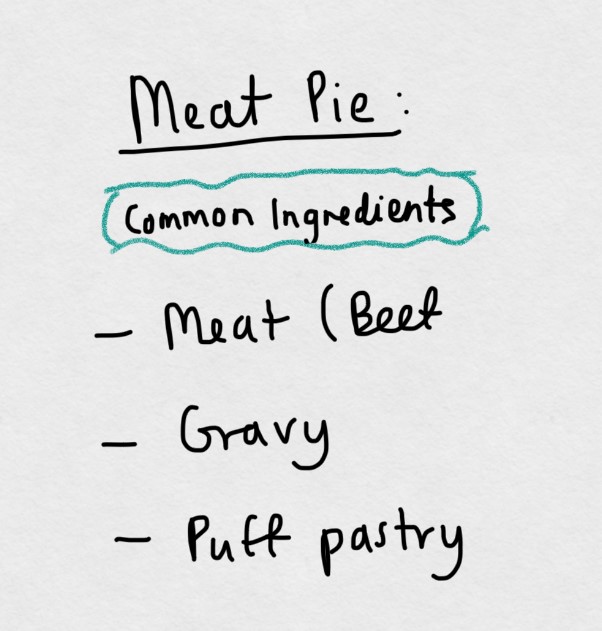 Meat Pie:
Common Ingredients
- Meat (Beef
- Gravy
- Puff pastry